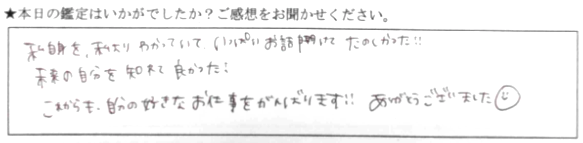 ★本日の鑑定はいかがでしたか？ご感想をお聞かせください。
私自身を、私よりわかっていて、いっぱいお話聞けてたのしかった!!
未来の自分を知れて良かった!
これからも、自分の好きなお仕事をがんばります!! ありがとうございました☺